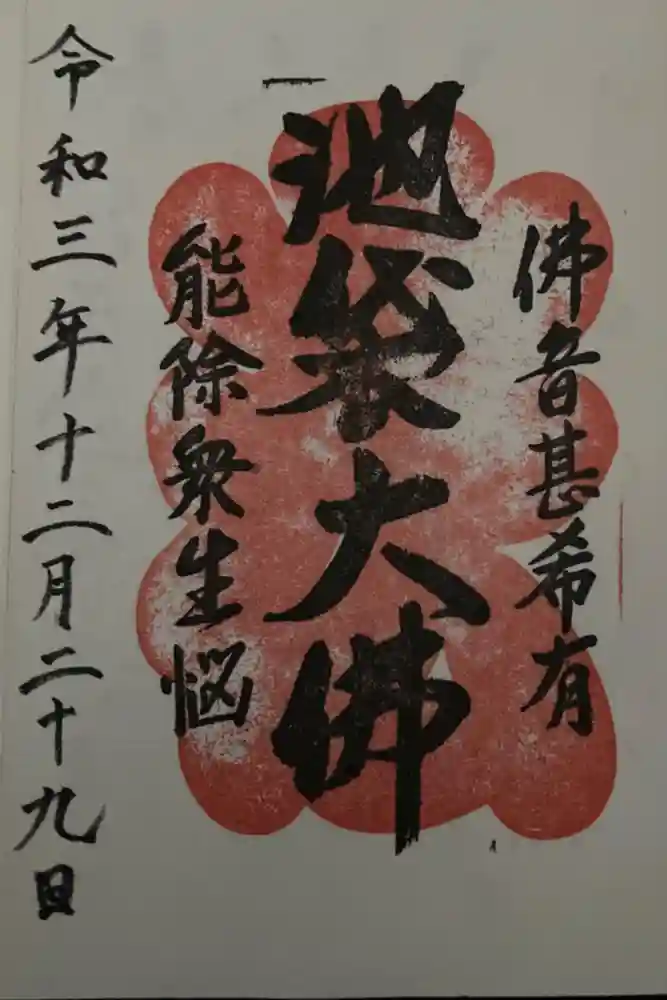 佛音甚希有
池袋大佛
能除衆生悩
令和三年十二月二十九日